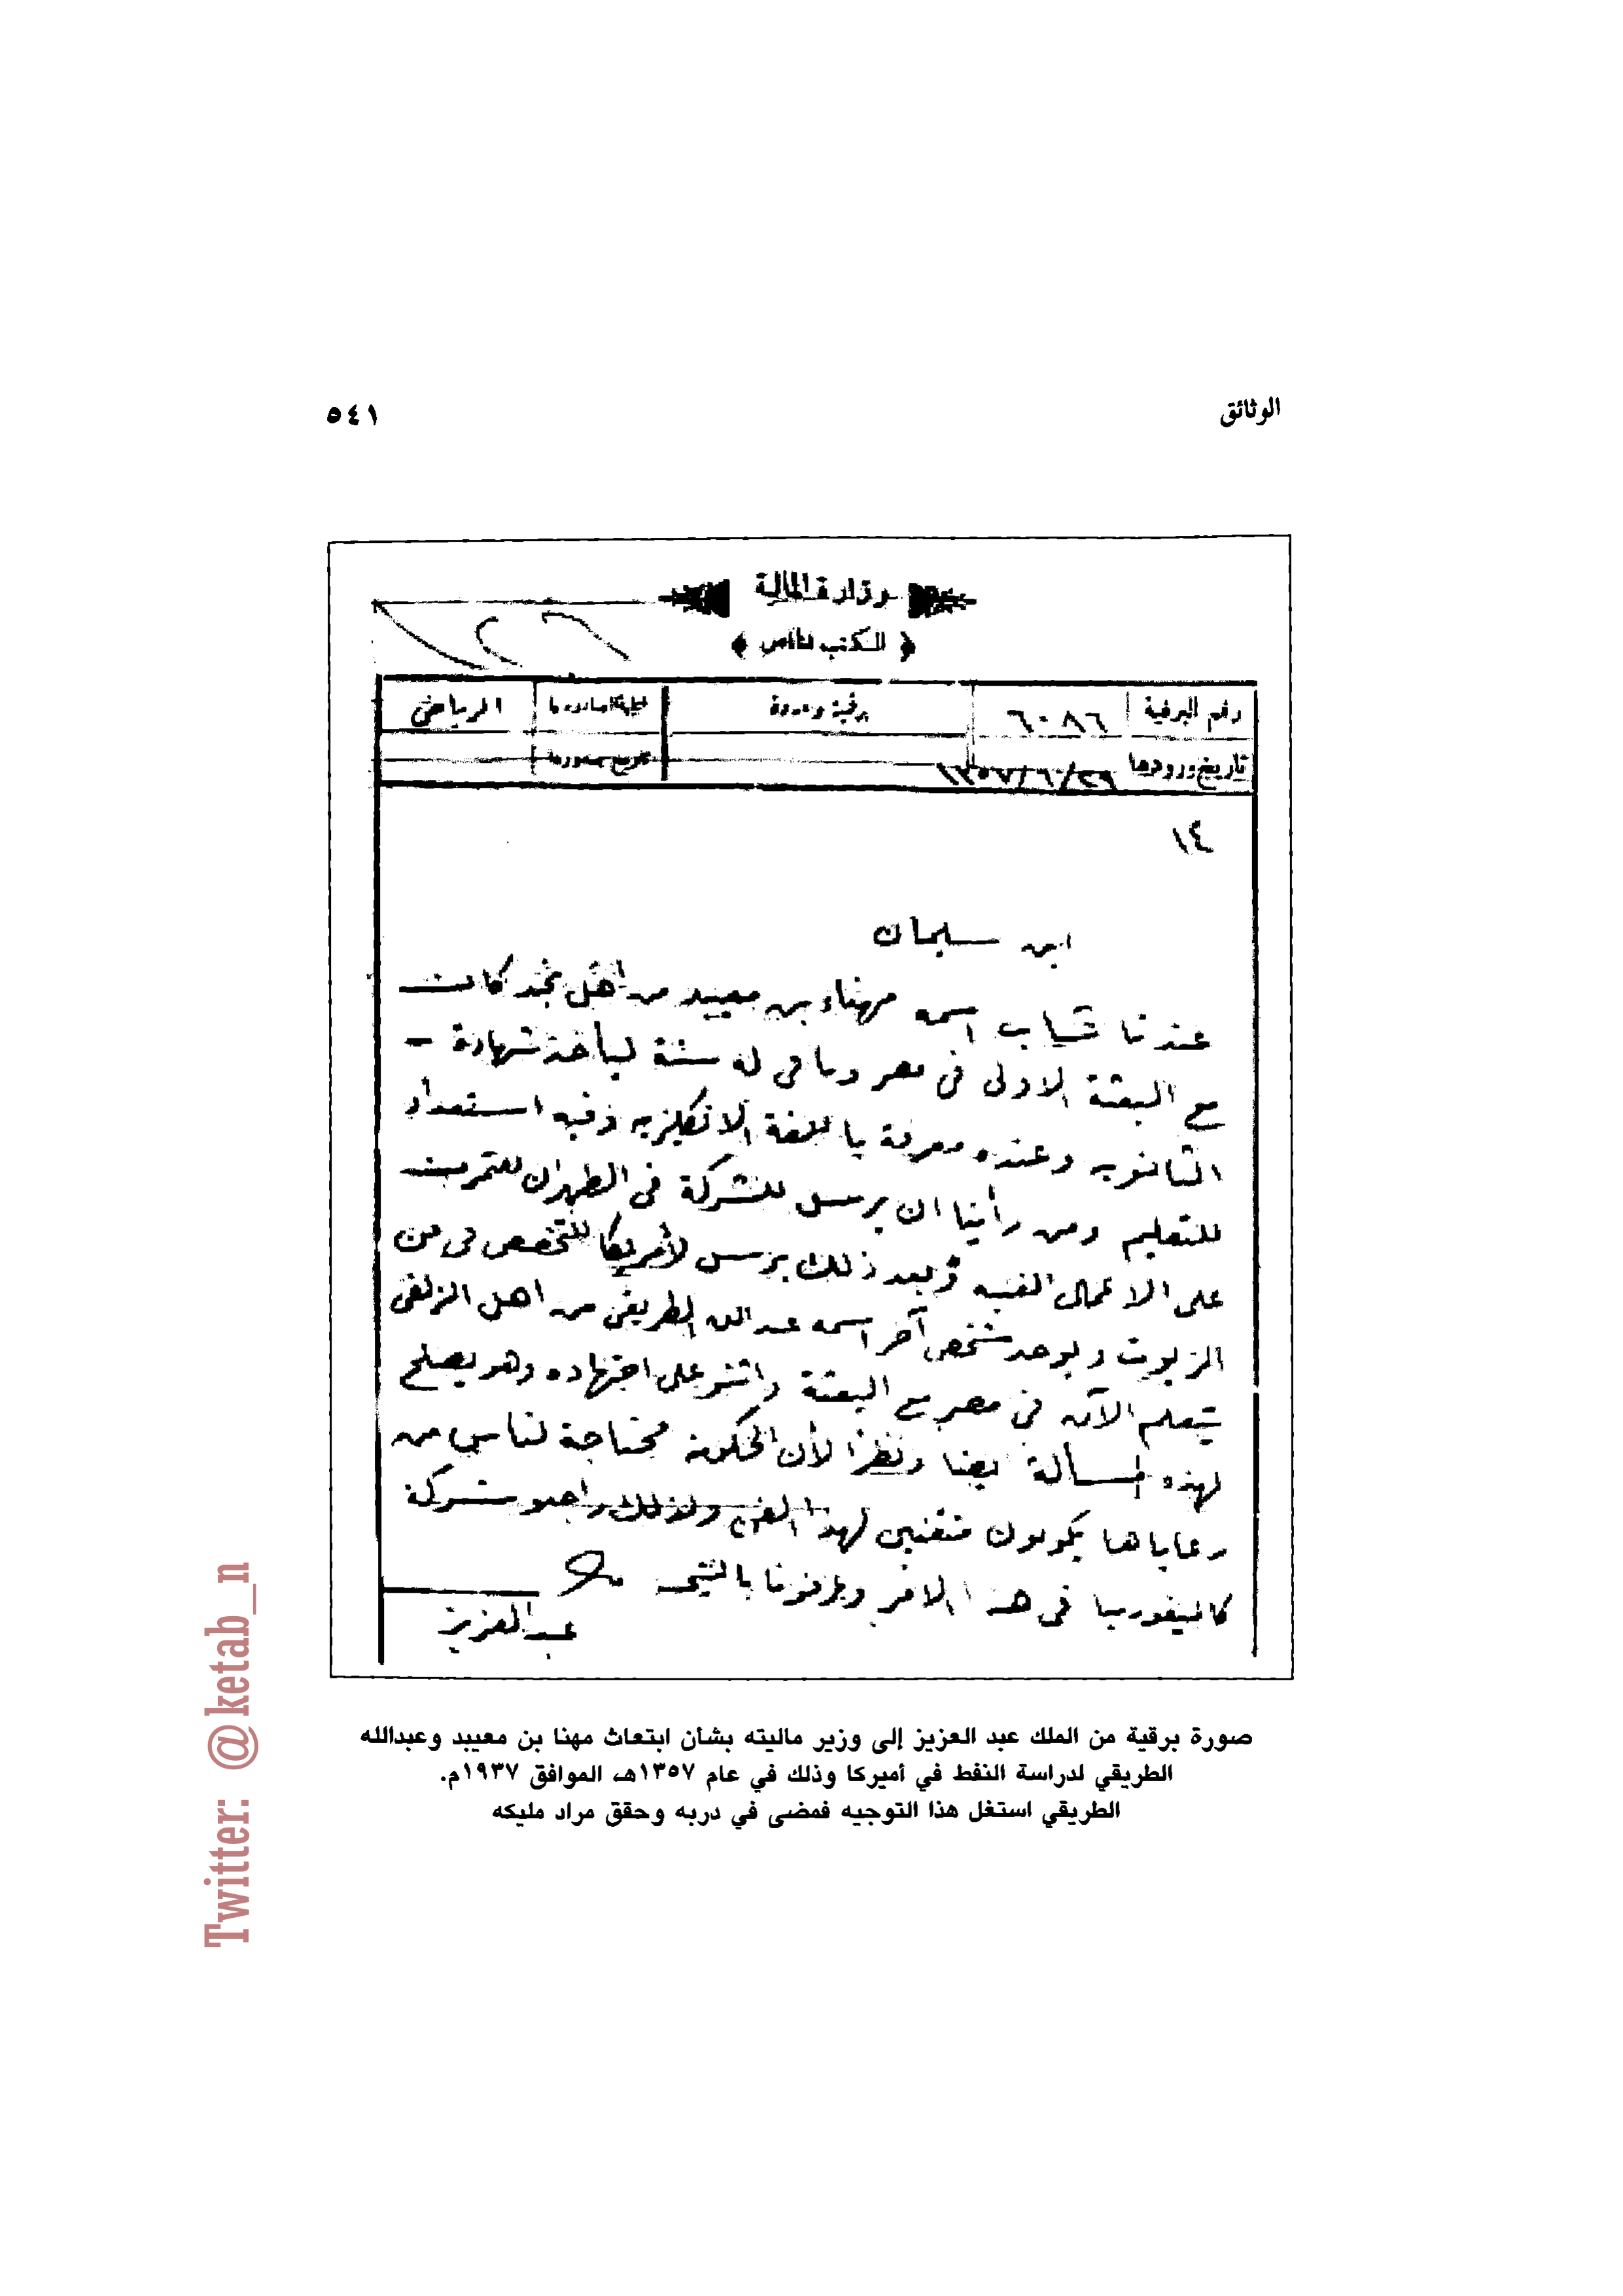 الوثائق
٥٤١
وزارة المالية
﴿ المكتب الخاص ﴾
رقم البرقية ٦٠٨٦ برقية واردة الجهة الصادرة منها الرياض
تاريخ ورودها ١٣٥٧/٦/٢٩ تاريخ صدورها
١٤
ابن سليمان
عندنا شاب اسمه مهناء بن معيبد من أهل نجد كانت
مع البعثة الاولى في مصر وباقي له سنة ليأخذ شهادة -
الثانويه وعنده معرفة باللغة الانكليزيه وفيه استعداد
للتعليم ومن رأينا ان يرسل للشركة في الظهران للتمرين
على الاعمال الفنيه وبعد ذلك يرسل لأمريكا للتخصص في فن
الزيوت ويوجد شخص آخر اسمه عبدالله الطريقي من اهل الزلفي
يتعلم الآن في مصر مع البعثة واثنو على اجتهاده وهو يصلح
لهذه المسألة ايضا ونظراً لأن الحكومة محتاجة لناس من
رعاياها يكونون متقنين لهذا الفن ولذلك راجعو شركة
كاليفورنيا في هذا الامر وعرفونا بالنتيجه
عبدالعزيز
صورة برقية من الملك عبد العزيز إلى وزير ماليته بشأن ابتعاث مهنا بن معيبد وعبدالله
الطريقي لدراسة النفط في أميركا وذلك في عام ١٣٥٧هـ، الموافق ١٩٣٧م.
الطريقي استغل هذا التوجيه فمضى في دربه وحقق مراد مليكه
Twitter: @ketab_n